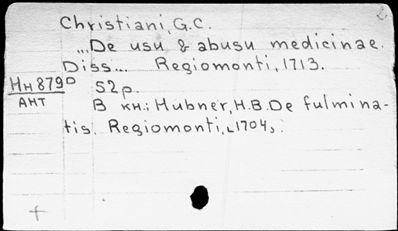 Christiani, G.C.
„De usu & abusu medicinae.
Diss... Regiomonti, 1713.
Нн 879ᴰ 52 p.
АНТ В кн.: Hubner, H.B. De fulmina-
tis. Regiomonti, [1704].